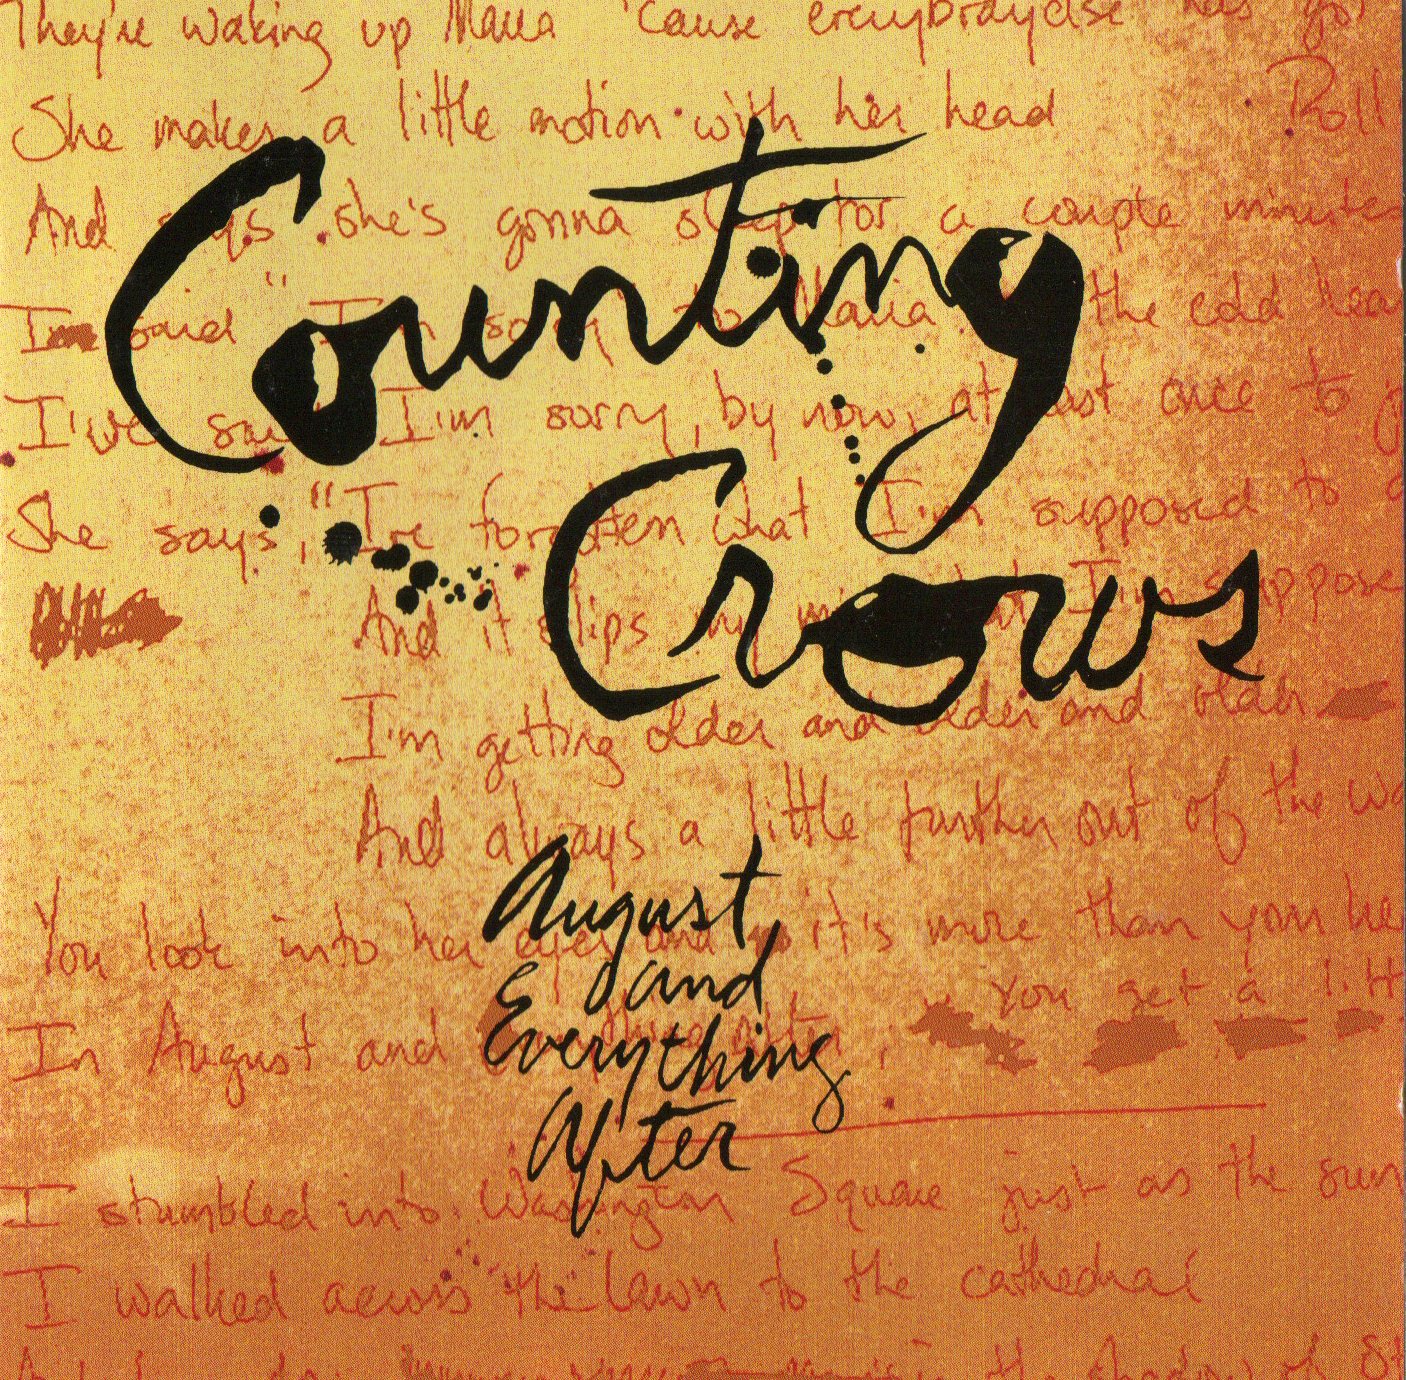 They're waking up Maria 'cause everybody else has got
She makes a little motion with her head
Roll
And says she's gonna sleep for a couple minutes
Counting
I said "I'm sorry to Maria the cold hear
I've said I'm sorry, by now, at least once to
Crows
She says, "I've forgotten what I'm supposed to
And it slips my mind what I'm suppose
I'm getting older and older and older
And always a little further out of the wa
August
and
Everything
After
You look into her eyes and it's more than your he
You get a litt
In August and everything after,
I stumbled into Washington Square just as the sun
I walked across the lawn to the cathedral
shadow of St